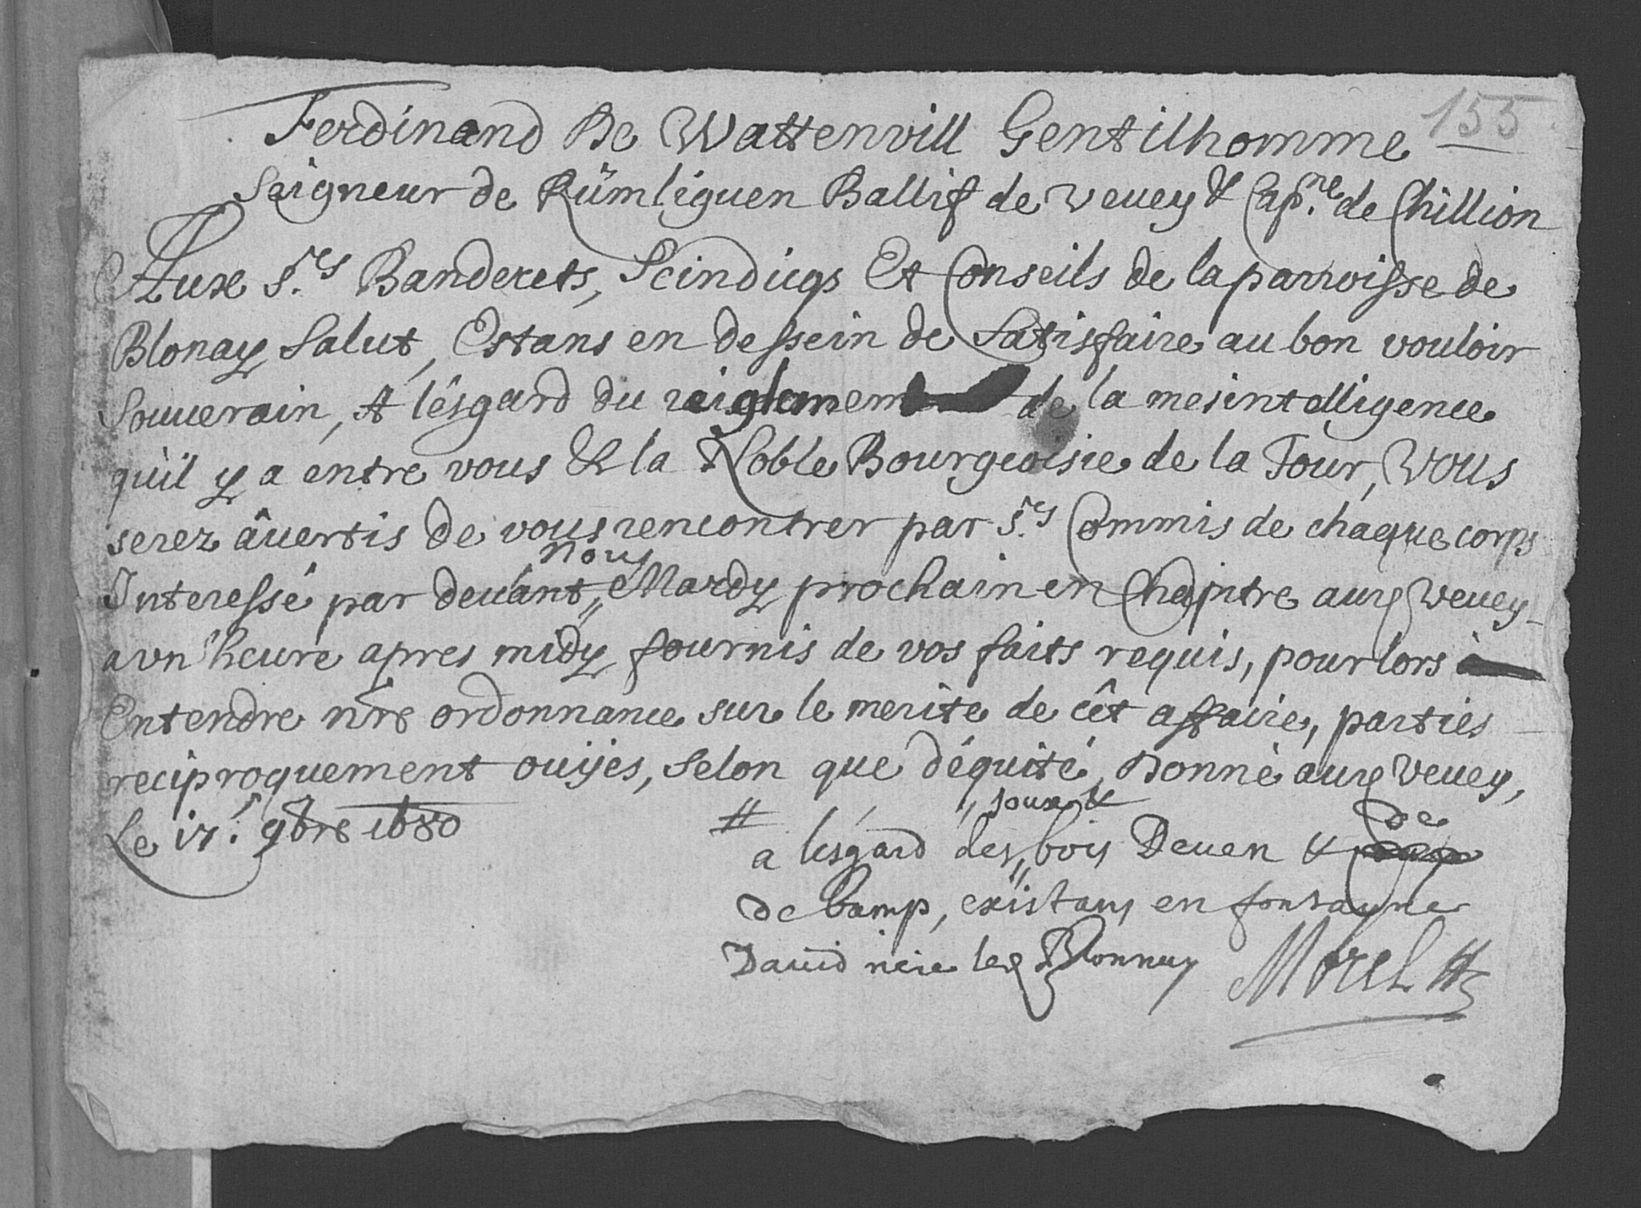 155
Ferdinand De Wattenvill Gentilhomme
Seigneur de Rümliguen Ballif de Vevey & Cap.ne de Chillion
Aux S.rs Banderets, Scindiqs Et Conseils de la parroisse de
Blonay Salut, Estans en dessein de Satisfaire au bon vouloir
Souverain, A l'ésgard du reiglement de la mesintelligence
qu'il y a entre vous & la Noble Bourgeoisie de la Tour, Vous
serez âvertis de vous rencontrer par S.rs Commis de chaque corps
Interessé par devant nous Mardy prochain en Chapitre aud Vevey
a vn heure apres midy fournis de vos faits requis, pour lors
Entendre nre ordonnance sur le merite de cêt affaire, parties
reciproquement ouijes, Selon que d'équité, Donné aud Vevey,
Le 17.e 9bre 1680
# a lésgard des joux & bois Deven & de
de Camp, existans en
David Morel